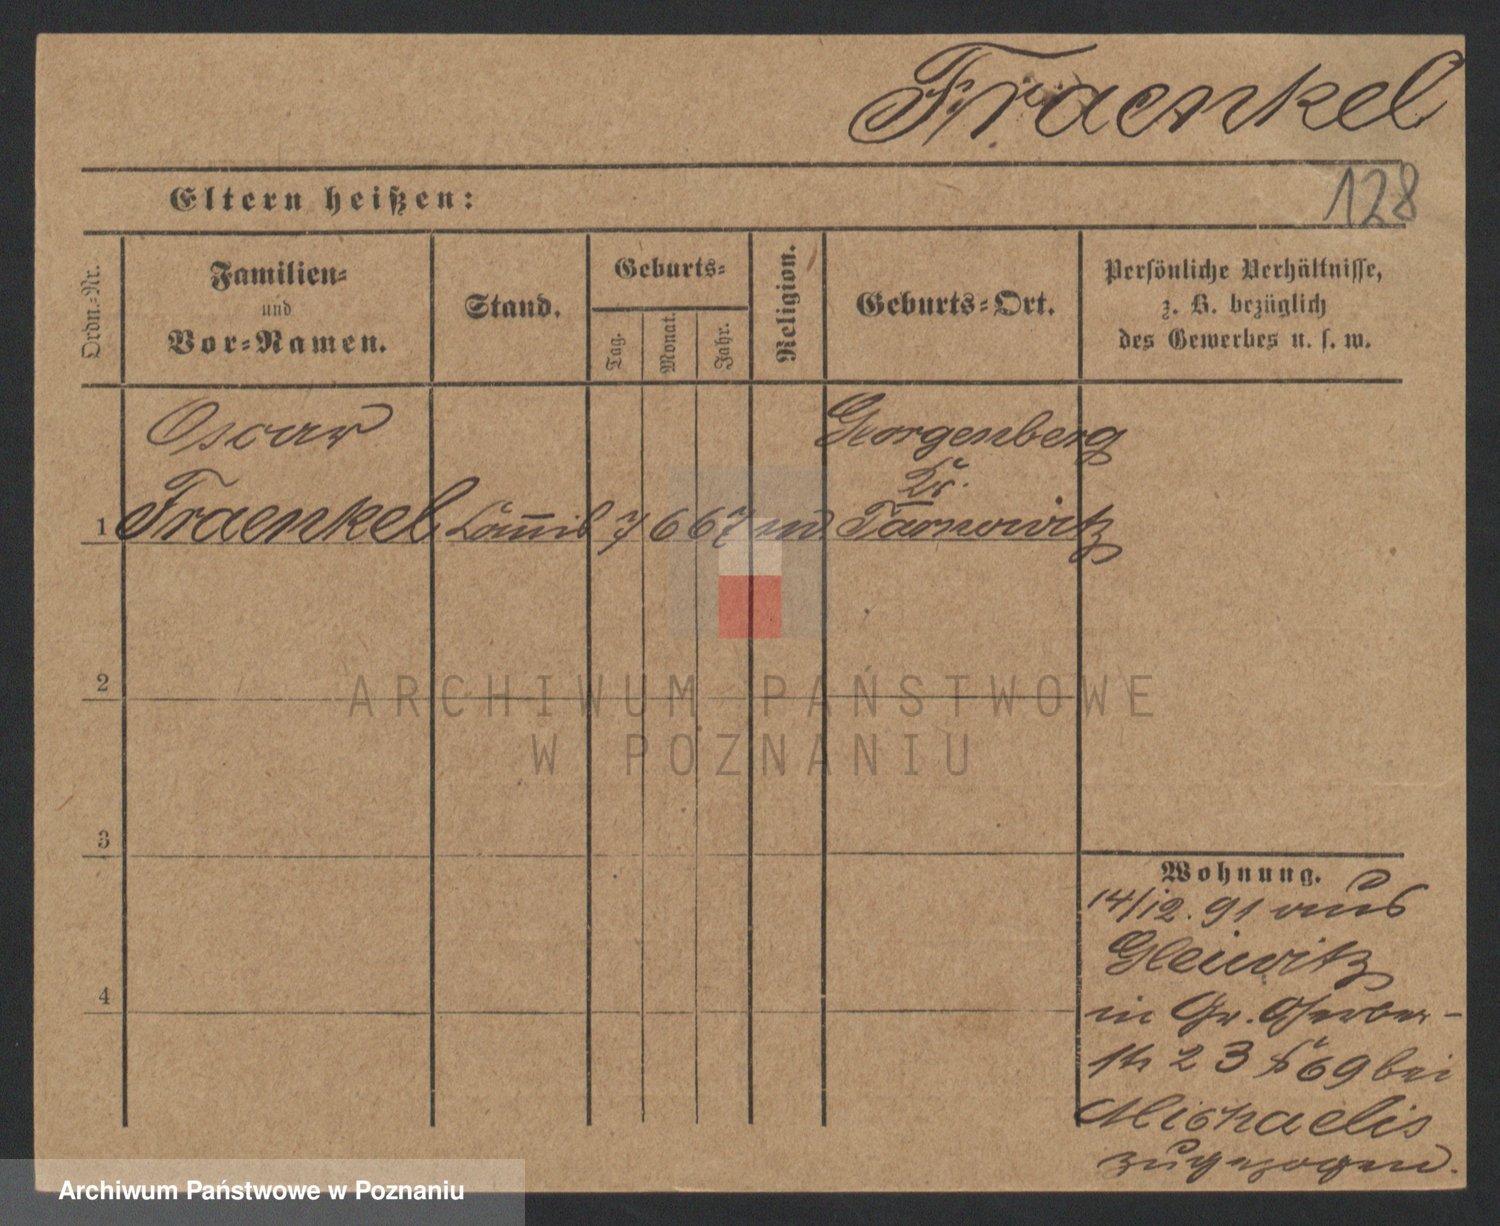 Fraenkel
128
Eltern heißen:
Ordn.-Nr.
Familien-
und
Vor-Namen.
Stand.
Geburts-
Tag.
Monat.
Jahr.
Religion.
Geburts-Ort.
Persönliche Verhältnisse,
z. B. bezüglich
des Gewerbes u. s. w.
Oscar
Georgenberg
Kr.
1 Fraenkel Com̄is 7 6 67 md Tarnowitz
2
3
4
Wohnung.
14/12. 91 aus
Gleiwitz
in Gr. Gerber-
str 23 69 bei
Michaelis
zugezogen.
ARCHIWUM PAŃSTWOWE
W POZNANIU
Archiwum Państwowe w Poznaniu